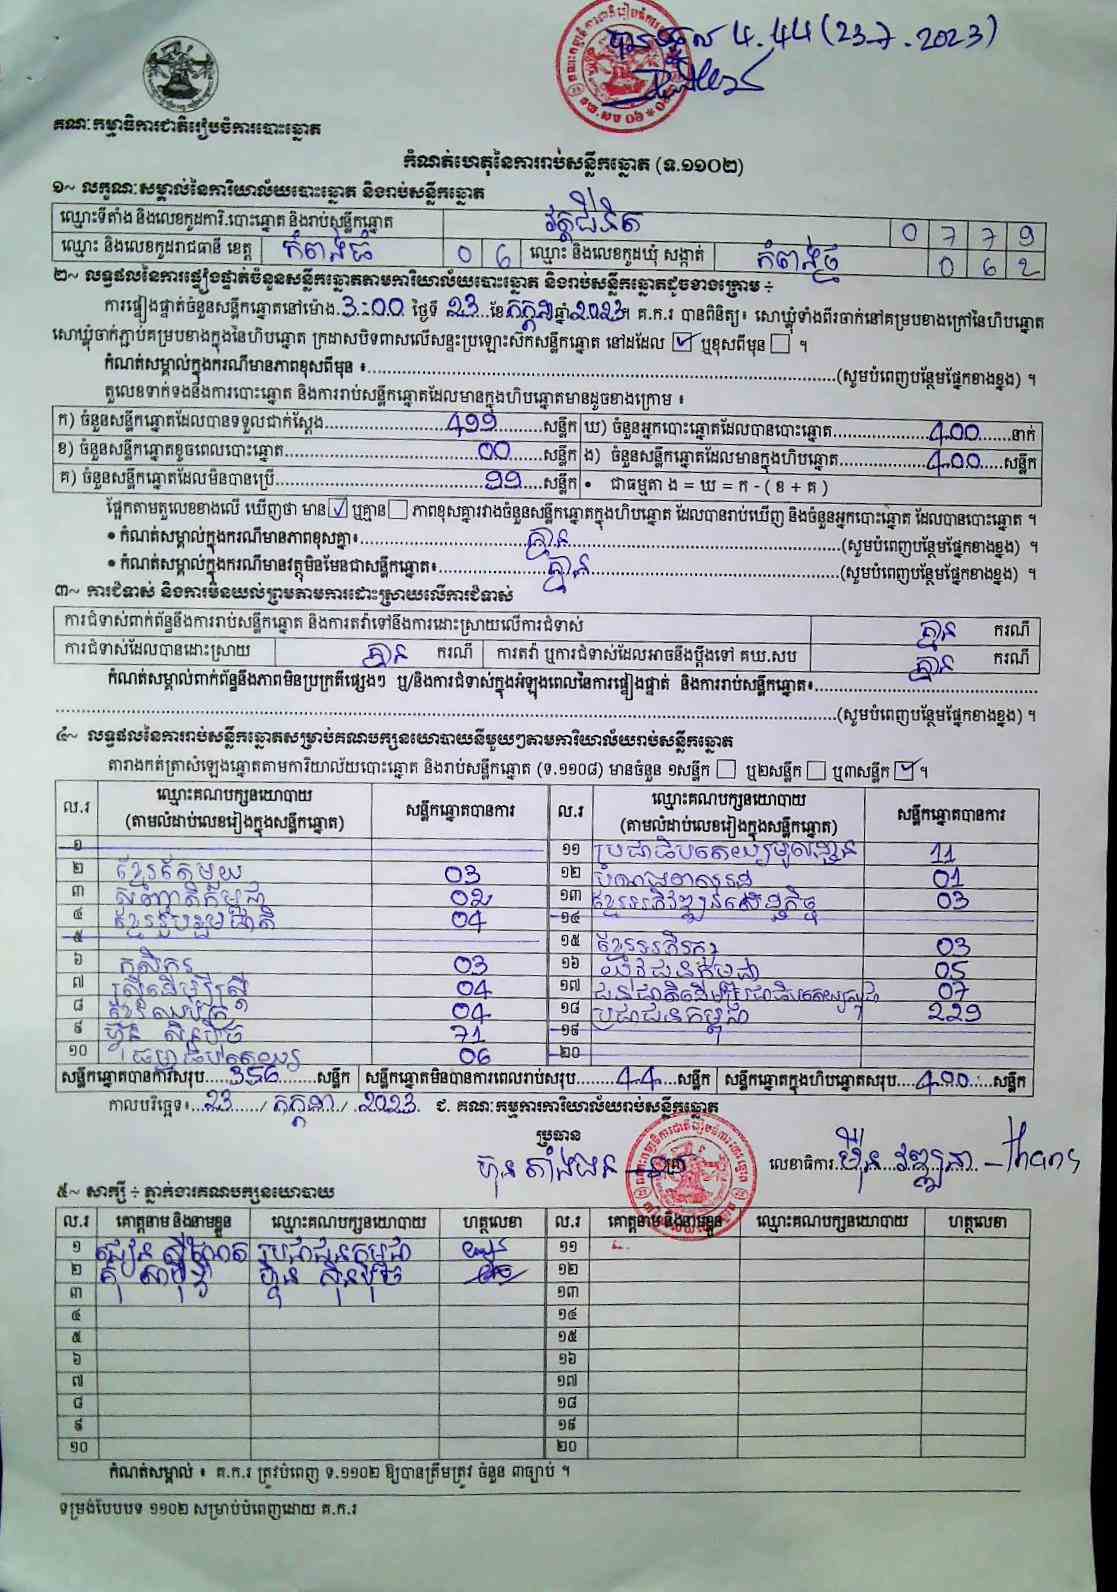 បានទទួល 4.44 (23.7.2023)
គណៈកម្មាធិការជាតិរៀបចំការបោះឆ្នោត
កំណត់ហេតុនៃការរាប់សន្លឹកឆ្នោត (ទ.១១០២)
១~ លក្ខណៈសម្គាល់នៃការិយាល័យបោះឆ្នោត និងរាប់សន្លឹកឆ្នោត
ឈ្មោះទីតាំង និងលេខកូដការិ.បោះឆ្នោត និងរាប់សន្លឹកឆ្នោត 0 7 7 9
ឈ្មោះ និងលេខកូដរាជធានី ខេត្ត កំពង់ធំ 0 6 ឈ្មោះ និងលេខកូដឃុំ សង្កាត់ 0 6 2
២~ លទ្ធផលនៃការផ្ទៀងផ្ទាត់ចំនួនសន្លឹកឆ្នោតតាមការិយាល័យបោះឆ្នោត និងរាប់សន្លឹកឆ្នោតដូចខាងក្រោម ÷
ការផ្ទៀងផ្ទាត់ចំនួនសន្លឹកឆ្នោតនៅម៉ោង 3:00 ថ្ងៃទី 23 ខែ កក្កដា ឆ្នាំ 2023។ គ.ក.រ បានពិនិត្យ៖ សោឃ្លុំទាំងពីរចាក់នៅគម្របខាងក្រៅនៃហិបឆ្នោត
សោឃ្លុំចាក់ភ្ជាប់គម្របខាងក្នុងនៃហិបឆ្នោត ក្រដាសបិទពាសលើសន្ទះប្រឡោះសឹកសន្លឹកឆ្នោត នៅដដែល ☑ ឬខុសពីមុន ☐ ។
កំណត់សម្គាល់ក្នុងករណីមានភាពខុសពីមុន ៖.....(សូមបំពេញបន្ថែមផ្នែកខាងខ្នង) ។
តួលេខទាក់ទងនឹងការបោះឆ្នោត និងការរាប់សន្លឹកឆ្នោតដែលមានក្នុងហិបឆ្នោតមានដូចខាងក្រោម ៖
ក) ចំនួនសន្លឹកឆ្នោតដែលបានទទួលជាក់ស្តែង.....499.....សន្លឹក ឃ) ចំនួនអ្នកបោះឆ្នោតដែលបានបោះឆ្នោត.....400.....នាក់
ខ) ចំនួនសន្លឹកឆ្នោតខូចពេលបោះឆ្នោត.....00.....សន្លឹក ង) ចំនួនសន្លឹកឆ្នោតដែលមានក្នុងហិបឆ្នោត.....400.....សន្លឹក
គ) ចំនួនសន្លឹកឆ្នោតដែលមិនបានប្រើ.....99.....សន្លឹក • ជាធម្មតា ង = ឃ = ក - ( ខ + គ )
ផ្អែកតាមតួលេខខាងលើ ឃើញថា មាន ☑ ឬគ្មាន ☐ ភាពខុសគ្នារវាងចំនួនសន្លឹកឆ្នោតក្នុងហិបឆ្នោត ដែលបានរាប់ឃើញ និងចំនួនអ្នកបោះឆ្នោត ដែលបានបោះឆ្នោត ។
• កំណត់សម្គាល់ក្នុងករណីមានភាពខុសគ្នា៖.....គ្មាន.....(សូមបំពេញបន្ថែមផ្នែកខាងខ្នង) ។
• កំណត់សម្គាល់ក្នុងករណីមានវត្ថុមិនមែនជាសន្លឹកឆ្នោត៖.....គ្មាន.....(សូមបំពេញបន្ថែមផ្នែកខាងខ្នង) ។
៣~ ការជំទាស់ និងការមិនយល់ព្រមតាមការដោះស្រាយលើការជំទាស់
ការជំទាស់ពាក់ព័ន្ធនឹងការរាប់សន្លឹកឆ្នោត និងការតវ៉ាទៅនឹងការដោះស្រាយលើការជំទាស់ គ្មាន ករណី
ការជំទាស់ដែលបានដោះស្រាយ គ្មាន ករណី ការតវ៉ា ឬការជំទាស់ដែលអាចនឹងប្តឹងទៅ គឃ.សប គ្មាន ករណី
កំណត់សម្គាល់ពាក់ព័ន្ធនឹងភាពមិនប្រក្រតីផ្សេងៗ ឬ/និងការជំទាស់ក្នុងអំឡុងពេលនៃការផ្ទៀងផ្ទាត់ និងការរាប់សន្លឹកឆ្នោត៖.....
.....(សូមបំពេញបន្ថែមផ្នែកខាងខ្នង) ។
៤~ លទ្ធផលនៃការរាប់សន្លឹកឆ្នោតសម្រាប់គណបក្សនយោបាយនីមួយៗតាមការិយាល័យរាប់សន្លឹកឆ្នោត
តារាងកត់ត្រាសំឡេងឆ្នោតតាមការិយាល័យបោះឆ្នោត និងរាប់សន្លឹកឆ្នោត (ទ.១១០៨) មានចំនួន ១សន្លឹក ☐ ឬ២សន្លឹក ☐ ឬ៣សន្លឹក ☑ ។
ល.រ ឈ្មោះគណបក្សនយោបាយ (តាមលំដាប់លេខរៀងក្នុងសន្លឹកឆ្នោត) សន្លឹកឆ្នោតបានការ ល.រ ឈ្មោះគណបក្សនយោបាយ (តាមលំដាប់លេខរៀងក្នុងសន្លឹកឆ្នោត) សន្លឹកឆ្នោតបានការ
១ ១១ ប្រជាធិបតេយ្យមូលដ្ឋាន 11
២ ខ្មែរតែមួយ 03 ១២ 01
៣ សញ្ជាតិកម្ពុជា 02 ១៣ ខ្មែរអភិវឌ្ឍន៍សេដ្ឋកិច្ច 03
៤ ខ្មែររួបរួមជាតិ 04 ១៤
៥ ១៥ ខ្មែរអភិរក្ស 03
៦ កសិករ 03 ១៦ យុវជនកម្ពុជា 05
៧ ស្ត្រីដើម្បីស្ត្រី 04 ១៧ ជនជាតិដើមប្រជាធិបតេយ្យកម្ពុជា 07
៨ 04 ១៨ ប្រជាជនកម្ពុជា 229
៩ ហ៊្វុន ស៊ិនប៉ិច 71 ១៩
១០ ធម្មាធិបតេយ្យ 06 ២០
សន្លឹកឆ្នោតបានការសរុប.....356.....សន្លឹក សន្លឹកឆ្នោតមិនបានការពេលរាប់សរុប.....44.....សន្លឹក សន្លឹកឆ្នោតក្នុងហិបឆ្នោតសរុប.....400.....សន្លឹក
កាលបរិច្ឆេទ៖ 23 / កក្កដា / 2023 ជ. គណៈកម្មការការិយាល័យរាប់សន្លឹកឆ្នោត
ប្រធាន
លេខាធិការ
៥~ សាក្សី ÷ ភ្នាក់ងារគណបក្សនយោបាយ
ល.រ គោត្តនាម និងនាមខ្លួន ឈ្មោះគណបក្សនយោបាយ ហត្ថលេខា ល.រ គោត្តនាម និងនាមខ្លួន ឈ្មោះគណបក្សនយោបាយ ហត្ថលេខា
១ ប្រជាជនកម្ពុជា ១១
២ ហ៊្វុន ស៊ិនប៉ិច ១២
៣ ១៣
៤ ១៤
៥ ១៥
៦ ១៦
៧ ១៧
៨ ១៨
៩ ១៩
១០ ២០
កំណត់សម្គាល់ ៖ គ.ក.រ ត្រូវបំពេញ ទ.១១០២ ឱ្យបានត្រឹមត្រូវ ចំនួន ៣ច្បាប់ ។
ទម្រង់បែបបទ ១១០២ សម្រាប់បំពេញដោយ គ.ក.រ